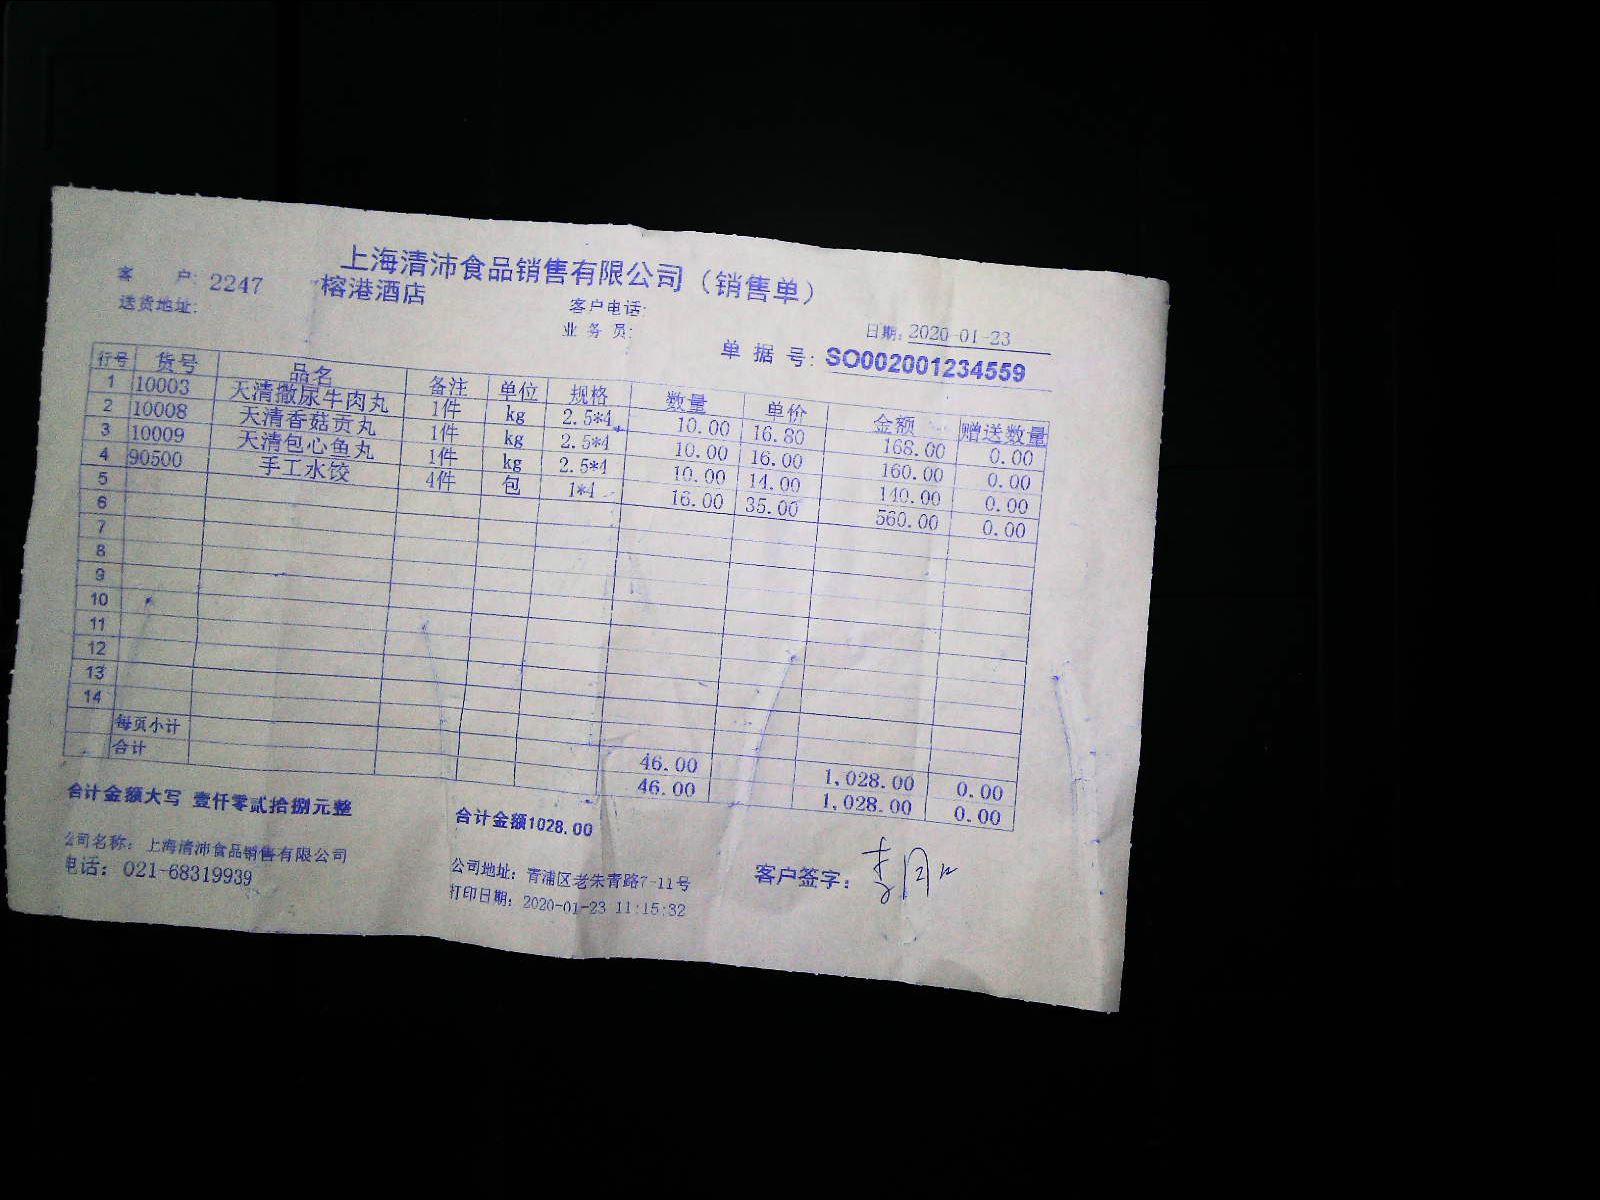 上海清沛食品销售有限公司（销售单）
客 户: 2247 榕港酒店 客户电话:
送货地址: 业 务 员: 日期: 2020-01-23
单 据 号: SO002001234559
行号 货号 品名 备注 单位 规格 数量 单价 金额 赠送数量
1 10003 天清撒尿牛肉丸 1件 kg 2.5*4 10.00 16.80 168.00 0.00
2 10008 天清香菇贡丸 1件 kg 2.5*4 10.00 16.00 160.00 0.00
3 10009 天清包心鱼丸 1件 kg 2.5*4 10.00 14.00 140.00 0.00
4 90500 手工水饺 4件 包 1*4 16.00 35.00 560.00 0.00
5
6
7
8
9
10
11
12
13
14
每页小计 46.00 1,028.00 0.00
合计 46.00 1,028.00 0.00
合计金额大写 壹仟零贰拾捌元整 合计金额1028.00
公司名称: 上海清沛食品销售有限公司 公司地址: 青浦区老朱青路7-11号 客户签字:
电话: 021-68319939 打印日期: 2020-01-23 11:15:32